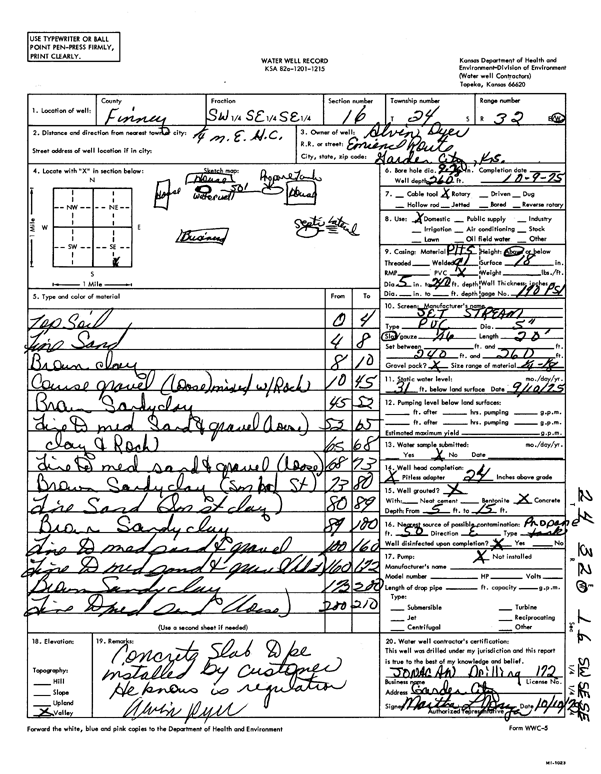 USE TYPEWRITER OR BALL
POINT PEN-PRESS FIRMLY,
PRINT CLEARLY.
WATER WELL RECORD
KSA 82a-1201-1215
Kansas Department of Health and
Environment-Division of Environment
(Water well Contractors)
Topeka, Kansas 66620
1. Location of well:
County
Finney
Fraction
SW 1/4 SE 1/4 SE 1/4
Section number
16
Township number
T 24 S
Range number
R 32 E/W
2. Distance and direction from nearest town or city:
Street address of well location if in city:
3. Owner of well: Alvin Dyer
R.R. or street:
City, state, zip code: Garden City, Ks.
4. Locate with "X" in section below:
N
NW NE
W E
SW SE
S
1 Mile
1 Mile
Sketch map:
House
House
House
Water well
50'
Business
6. Bore hole dia. in. Completion date 10-9-75
Well depth 260 ft.
7. Cable tool X Rotary Driven Dug
Hollow rod Jetted Bored Reverse rotary
8. Use: X Domestic Public supply Industry
Irrigation Air conditioning Stock
Lawn Oil field water Other
9. Casing: Material Height: Above or below
Threaded Welded Surface 18 in.
RMP PVC X Weight lbs./ft.
Dia. 5 in. to 240 ft. depth Wall Thickness: inches or
Dia. in. to ft. depth gage No. 190 PSI
5. Type and color of material
From To
Top Soil 0 4
Fine Sand 4 8
Brown clay 8 10
Course gravel (loose) mixed w/Rock 10 45
Brown Sandy clay 45 52
Fine to med Sand & gravel (loose) 52 65
clay & Rock 65 68
Fine to med sand & gravel (loose) 68 73
Brown Sandy clay 73 80
Fine Sand 80 89
Brown Sandy clay 89 100
Fine to med sand & gravel 100 160
Fine to med sand & gravel 160 173
Brown Sandy clay 173 200
Fine to med sand (loose) 200 210
(Use a second sheet if needed)
10. Screen: Manufacturer's name
JET STREAM
Type PVC Dia. 5"
Slot/gauze Length 20'
Set between ft. and ft.
240 ft. and 260 ft.
Gravel pack? X Size range of material
11. Static water level: mo./day/yr.
31 ft. below land surface Date 9/10/75
12. Pumping level below land surfaces:
ft. after hrs. pumping g.p.m.
ft. after hrs. pumping g.p.m.
Estimated maximum yield g.p.m.
13. Water sample submitted: mo./day/yr.
Yes X No Date
14. Well head completion:
X Pitless adapter 24 Inches above grade
15. Well grouted? X
With: Neat cement Bentonite X Concrete
Depth: From 5 ft. to 15 ft.
16. Nearest source of possible contamination: Propane
ft. 50 Direction E Type tank
Well disinfected upon completion? X Yes No
17. Pump: X Not installed
Manufacturer's name
Model number HP Volts
Length of drop pipe ft. capacity g.p.m.
Type:
Submersible Turbine
Jet Reciprocating
Centrifugal Other
18. Elevation:
Topography:
Hill
Slope
Upland
X Valley
19. Remarks:
Concrete Slab
installed by customer
He knows is regulation
Alvin Dyer
20. Water well contractor's certification:
This well was drilled under my jurisdiction and this report
is true to the best of my knowledge and belief.
Drilling 172
Business name License No.
Address Garden City
Signed Date 10/10/75
Authorized Representative
Forward the white, blue and pink copies to the Department of Health and Environment
Form WWC-5
24 32 W 16 SW SE SE
T R E Sec 1/4 1/4 1/4